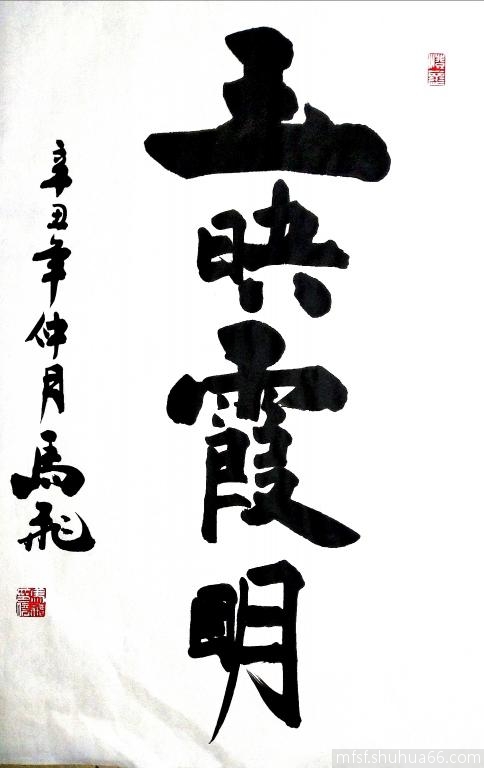 玉映霞明
辛丑年仲月馬飛
mfsf.shuhua66.com